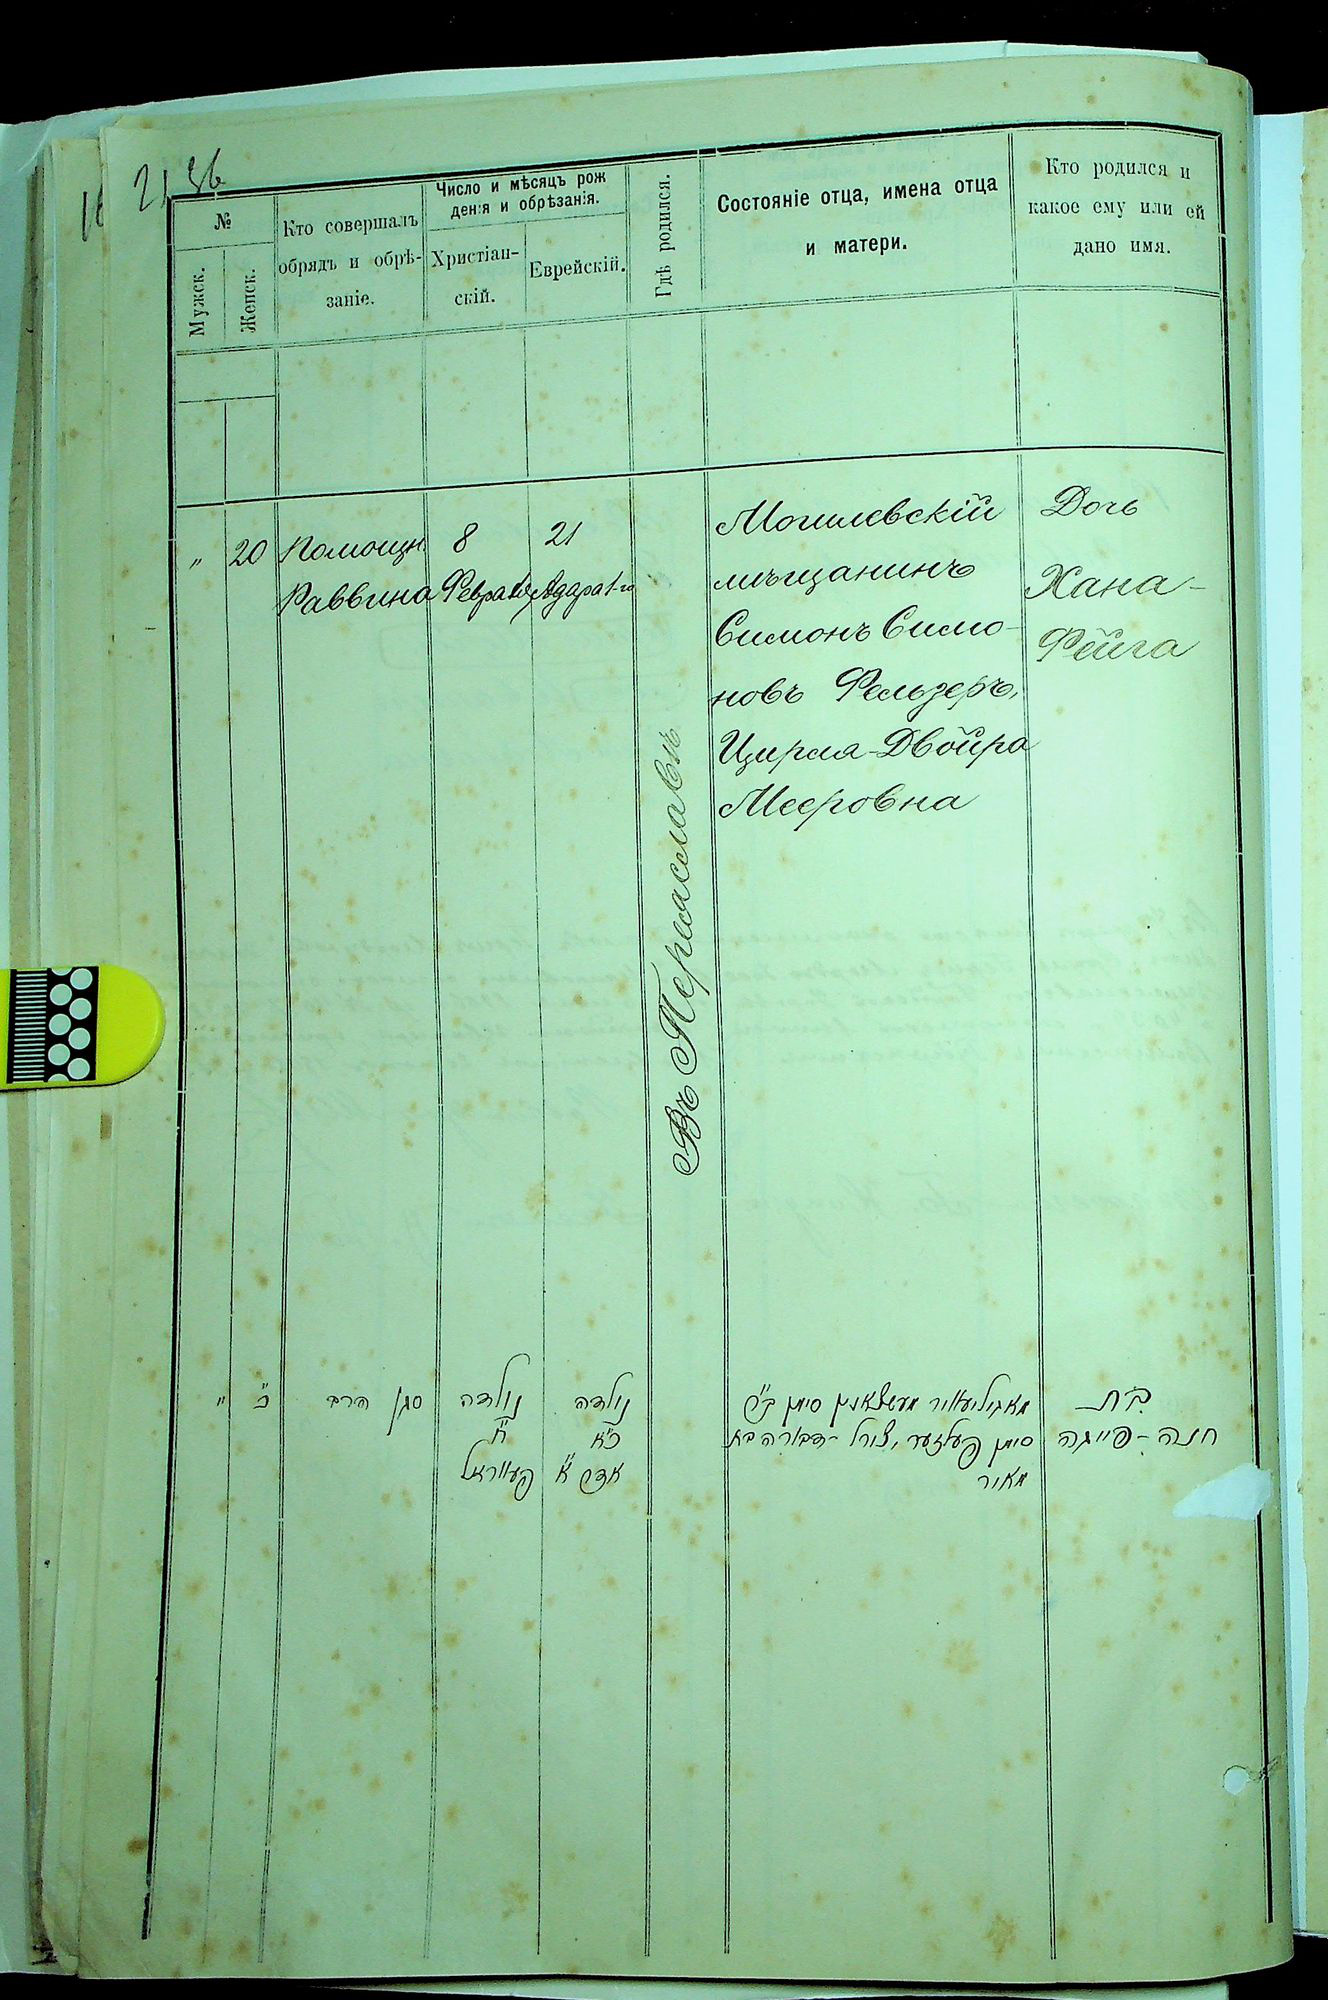 2136
№
Мужск.
Женск.
Кто совершалъ
обрядъ и обрѣ-
заніе.
Число и мѣсяцъ рож
денія и обрѣзанія.
Христіан-
скій.
Еврейскій.
Гдѣ родился.
Состояніе отца, имена отца
и матери.
Кто родился и
какое ему или ей
дано имя.
" 20
Помощн.
Раввина
8
Февраля
21
Адара 1-го
Въ Переяславѣ
Могилевскій
мѣщанинъ
Симонъ Симо-
новъ Фельзеръ,
Цирля-Двойра
Мееровна
Дочь
Хана-
Фейга
" כ"
סגן הרב
נולדה
ח"
פעווראל
נולדה
כ"א
אדר א"
סימן
סימן פעלזער, צירל-דבורה בת
מאיר
בת
חנה-פייגה